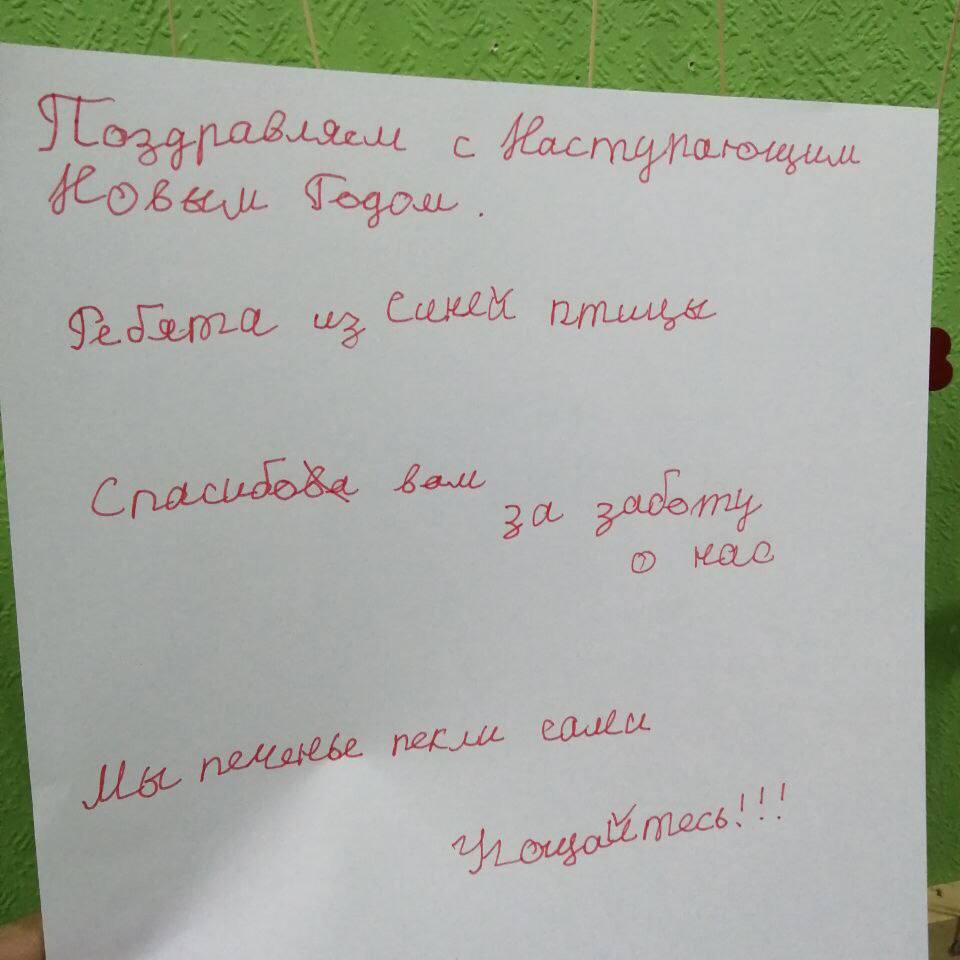 Поздравляем с Наступающим
Новым Годом.
Ребята из Синей птицы
Спасибо вам
за заботу
о нас
Мы печенье пекли сами
Угощайтесь!!!